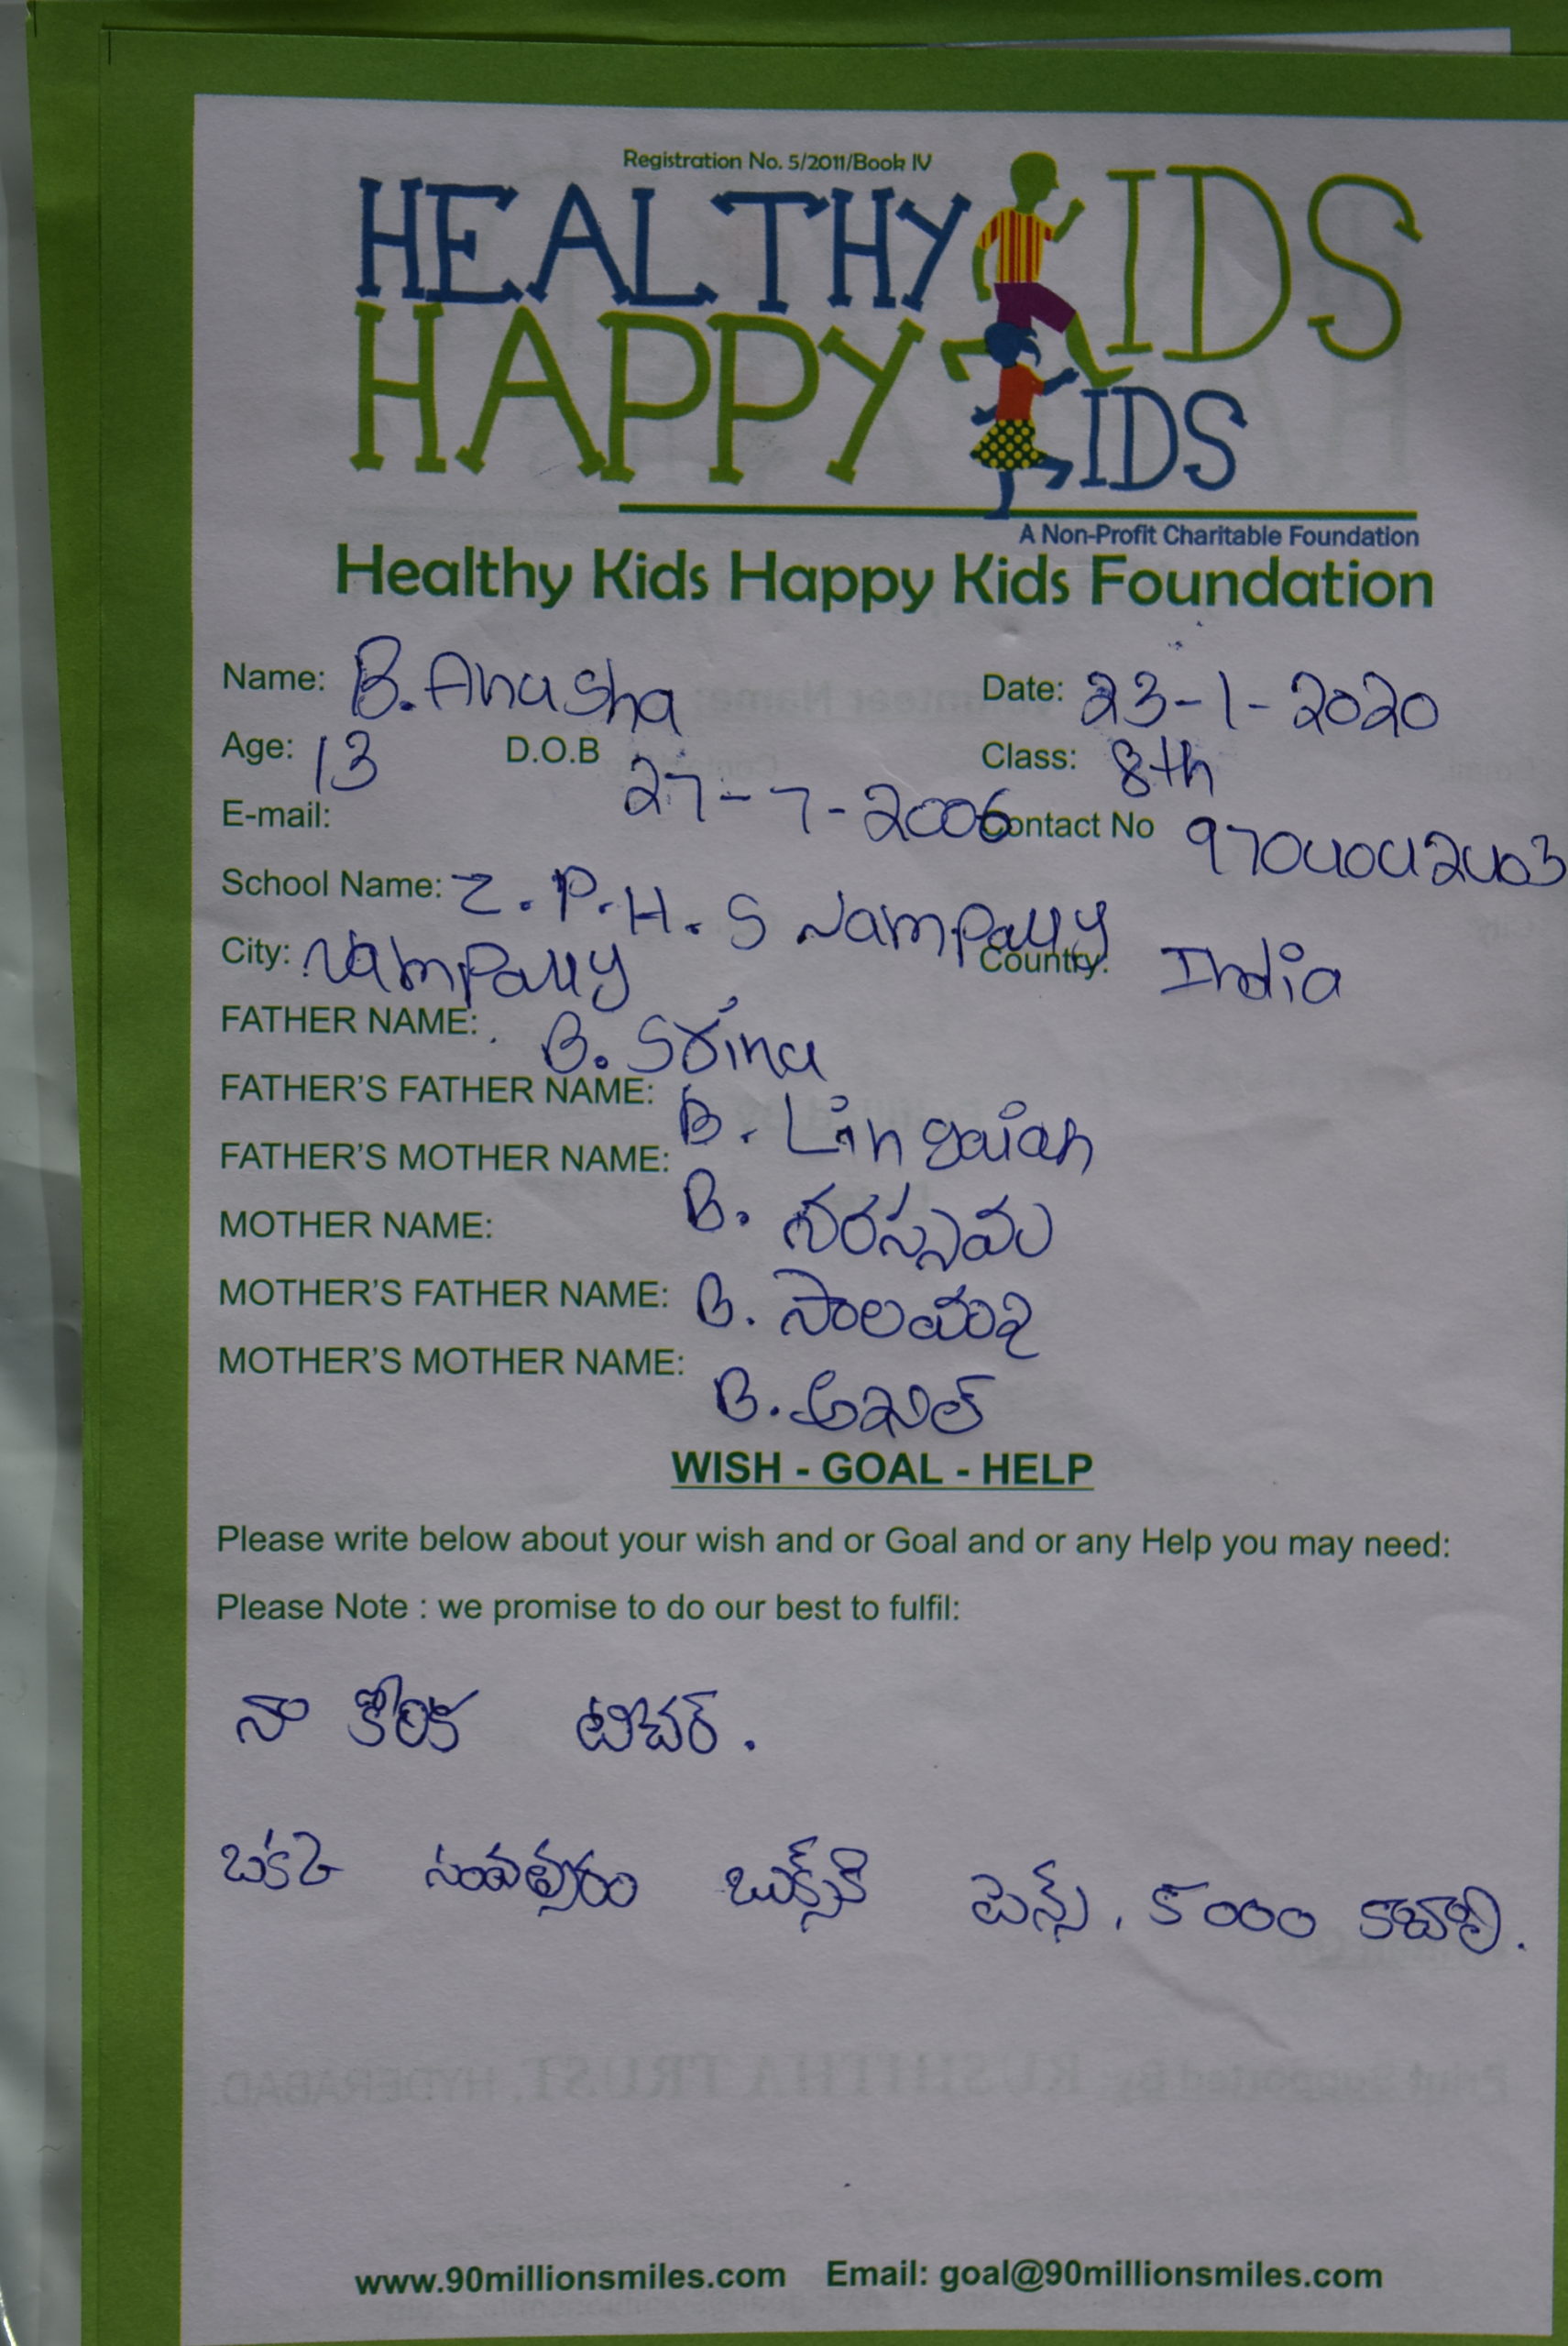 Registration No. 5/2011/Book IV
HEALTHY KIDS
HAPPY KIDS
A Non-Profit Charitable Foundation
Healthy Kids Happy Kids Foundation
Name: B. Anusha Date: 23-1-2020
Age: 13 D.O.B 27-7-2006 Class: 8th
E-mail: Contact No
School Name: Z.P.H.S Nampally
City: Nampally Country: India
FATHER NAME: B. Srinu
FATHER'S FATHER NAME: B. Lingaiah
FATHER'S MOTHER NAME: B.
MOTHER NAME:
MOTHER'S FATHER NAME: B.
MOTHER'S MOTHER NAME: B. అఖిల్
WISH - GOAL - HELP
Please write below about your wish and or Goal and or any Help you may need:
Please Note : we promise to do our best to fulfil:
నా కోరిక టిచర్.
ఒకటి సంవత్సరం బుక్స్‌కి పెన్స్. 5000 కావాలి.
www.90millionsmiles.com Email: goal@90millionsmiles.com